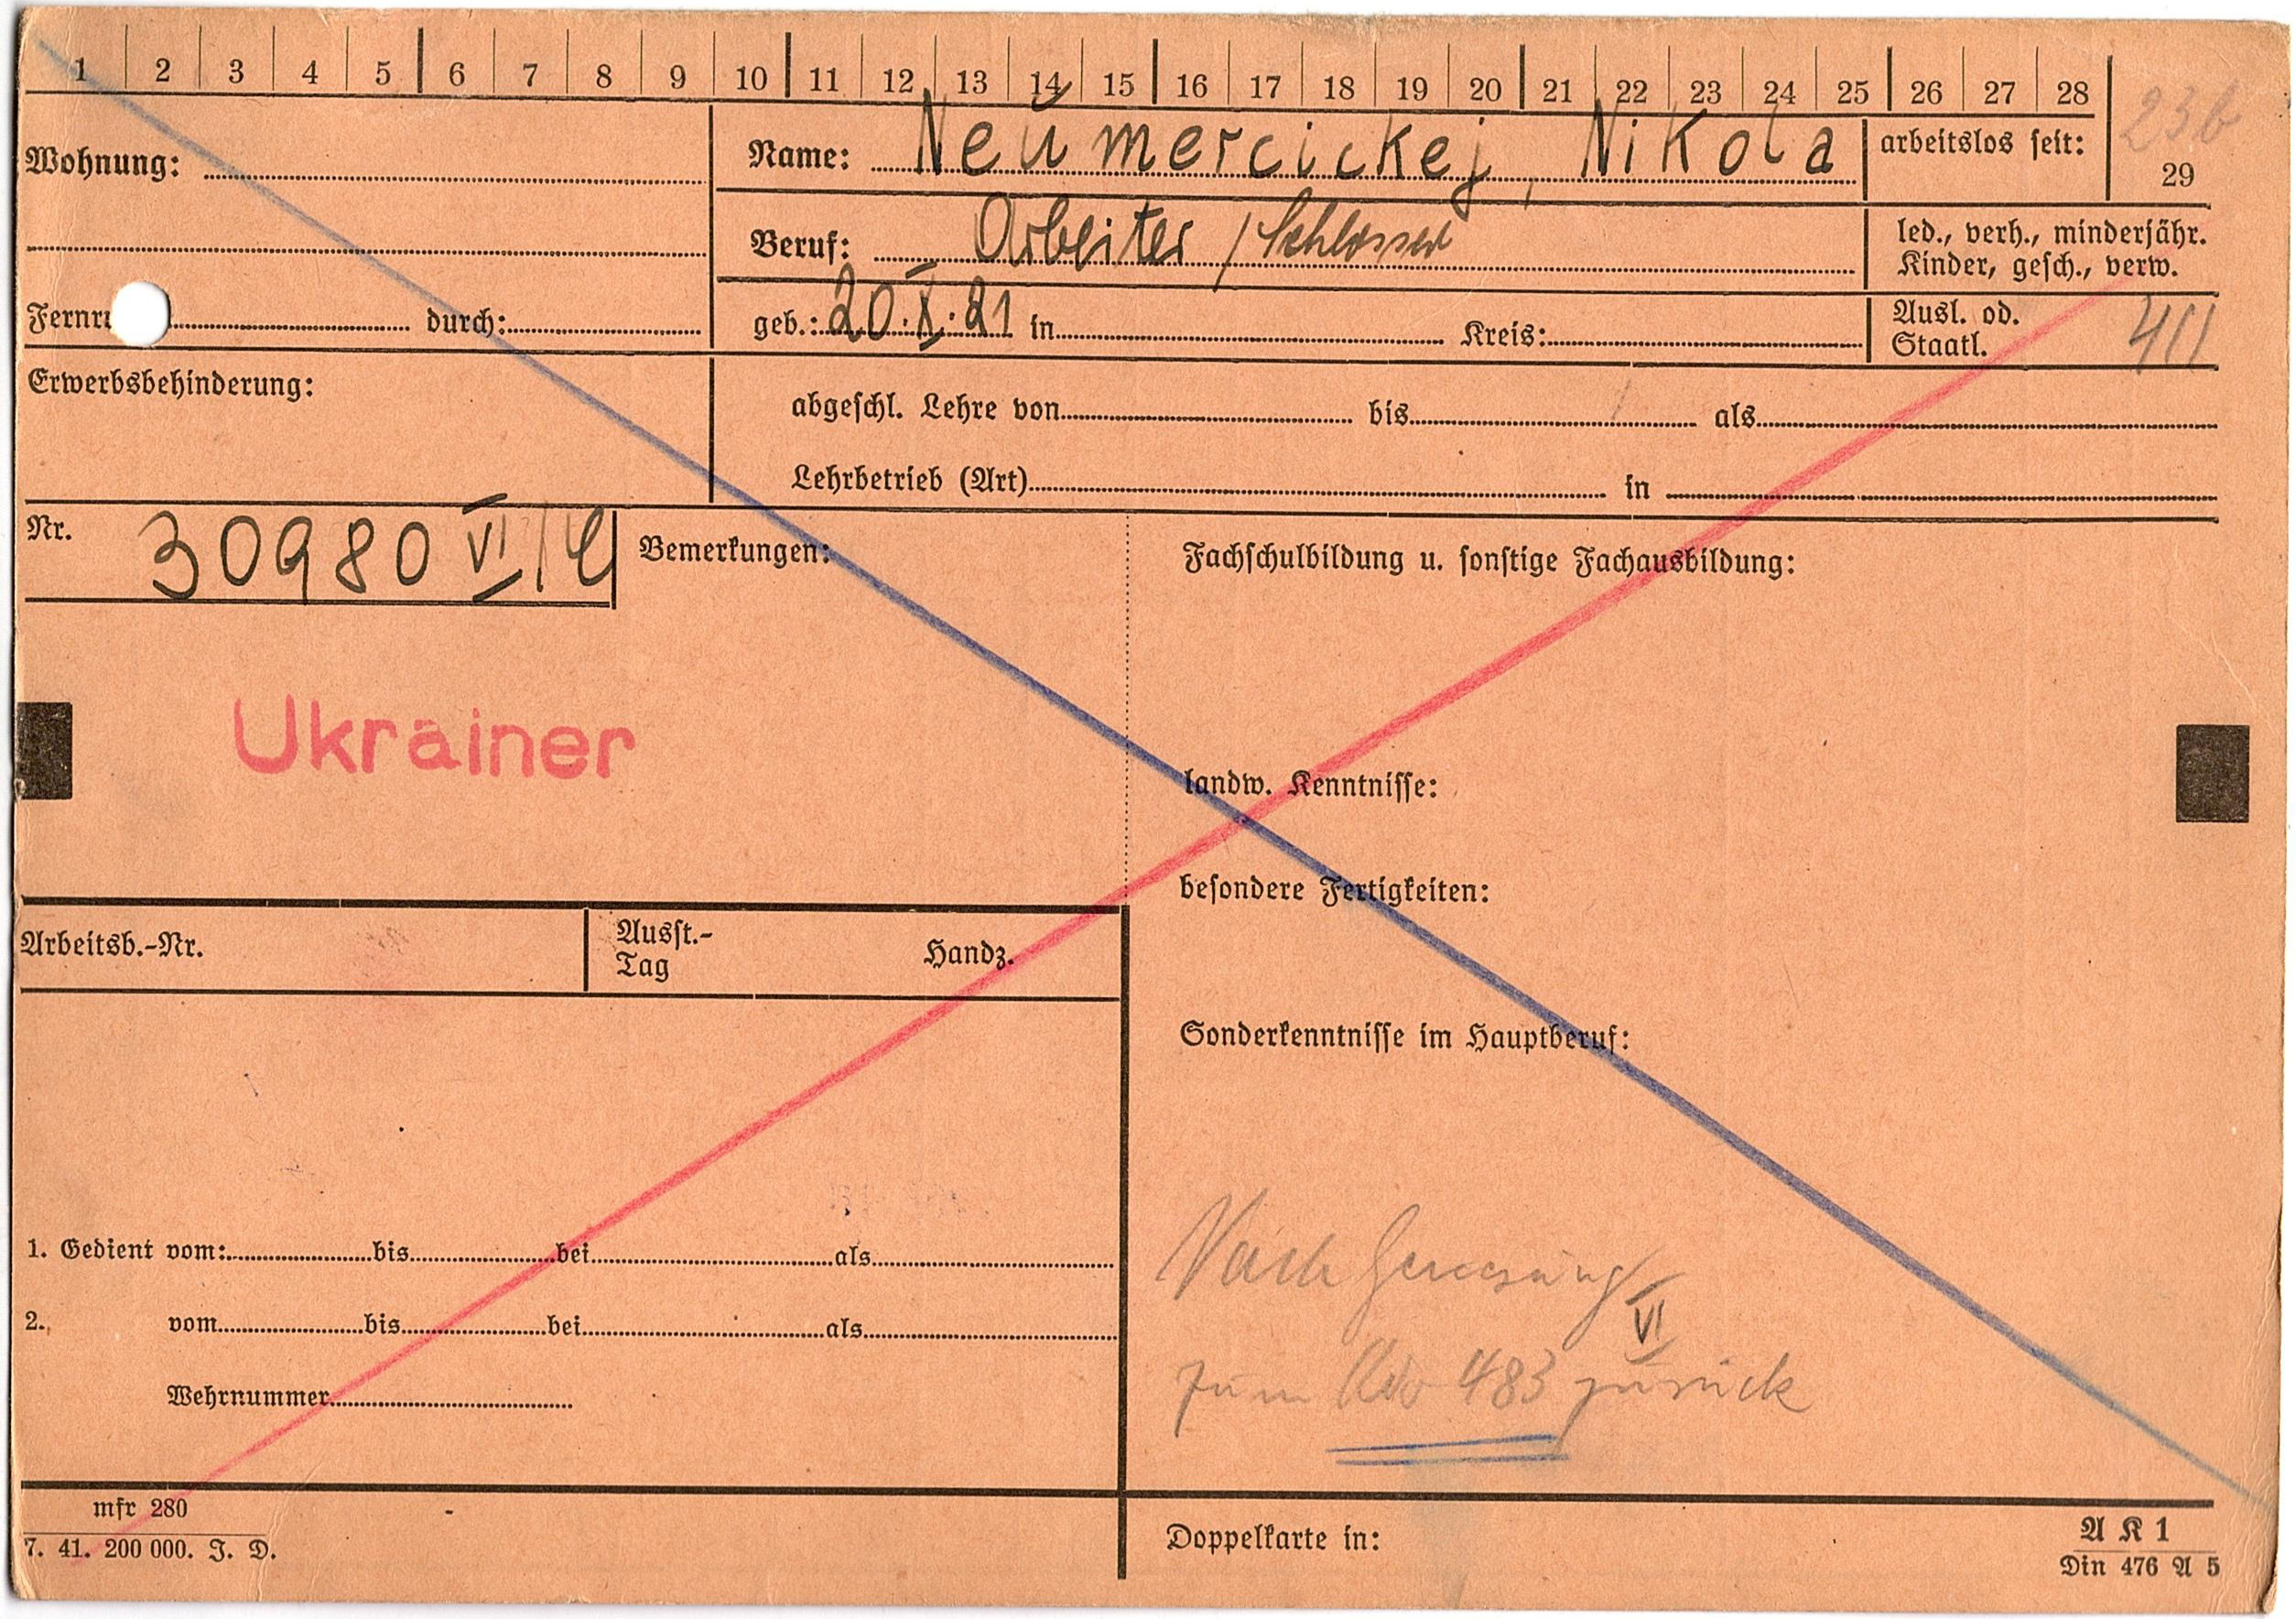 1 2 3 4 5 6 7 8 9 10 11 12 13 14 15 16 17 18 19 20 21 22 23 24 25 26 27 28
23b
29
Wohnung:
Name: Neŭmercickej, Nikola
arbeitslos seit:
Beruf: Arbeiter / Schlosser
led., verh., minderjähr.
Kinder, gesch., verw.
Fernru durch:
geb.: 20.X.21 in Kreis:
Ausl. od.
Staatl.
411
Erwerbsbehinderung:
abgeschl. Lehre von bis als
Lehrbetrieb (Art) in
Nr. 30980 VI/
Bemerkungen:
Fachschulbildung u. sonstige Fachausbildung:
Ukrainer
landw. Kenntnisse:
besondere Fertigkeiten:
Arbeitsb.-Nr.
Ausst.-
Tag
Handz.
Sonderkenntnisse im Hauptberuf:
Nach Genesung
VI
zum 483 zurück
1. Gedient vom: bis bei als
2. vom bis bei als
Wehrnummer
mfr 280
7. 41. 200 000. J. D.
Doppelkarte in:
A K 1
Din 476 A 5